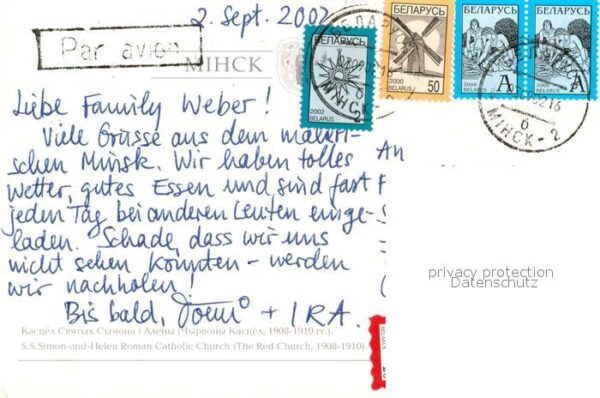 2. Sept. 2002
Par avion
МІНСК
БЕЛАРУСЬ
2002
BELARUS
БЕЛАРУСЬ
50
2000
BELARUS
БЕЛАРУСЬ
A
2000
BELARUS
БЕЛАРУСЬ
A
2000
BELARUS
МІНСК - 2
МІНСК - 2
Liebe Family Weber!
Viele Grüsse aus dem maleri-
schen Minsk. Wir haben tolles
Wetter, gutes Essen und sind fast
jeden Tag bei anderen Leuten einge-
laden. Schade, dass wir uns
nicht sehen konnten - werden
wir nachholen!
Bis bald, + IRA.
An
privacy protection
Datenschutz
Касцёл Святых Сымона і Алены (Чырвоны Касцёл, 1908-1910 гг.).
S.S.Simon-and-Helen Roman Catholic Church (The Red Church, 1908-1910).
BELARUS